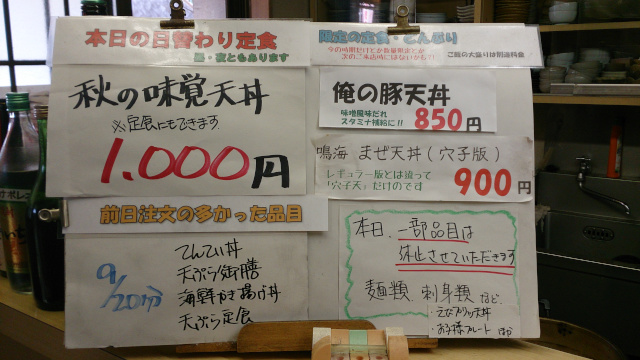 本日の日替わり定食
昼・夜ともあります
秋の味覚天丼
※定食にもできます
1.000円
前日注文の多かった品目
9/20分
天ぷら御膳
海鮮かき揚げ丼
天ぷら定食
限定の定食・どんぶり
ご飯の大盛りは別途料金
俺の豚天丼
味噌風味だれ
スタミナ補給に!!
850円
鳴海 まぜ天丼(穴子版)
レギュラー版とは違って
「穴子天」だけのです
900円
本日、一部品目は
休止させていただきます
麺類 刺身類 など
・えびブリッ天丼
・お子様プレート ほか